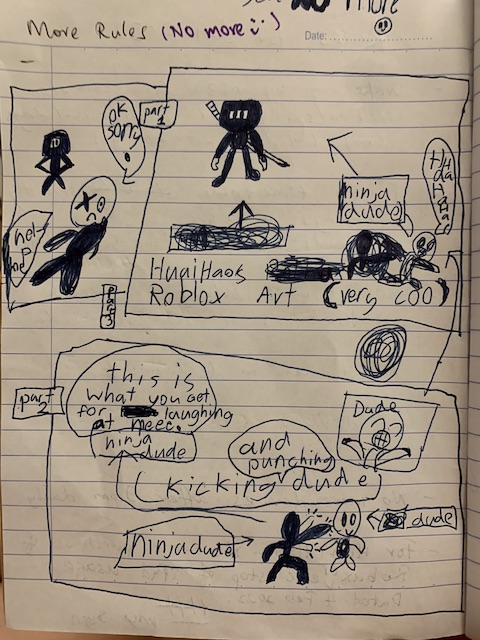 No more
More Rules (No more :))
Date:
part
1
ok
sorry
hel
p
me
part
3
ninja
dude
HuaiHaos
Roblox Art (very coo)
part
2
this is
what you get
for laughing
at meee.
ninja
dude
and
punching
Dude
(kicking dude)
ninja dude
dude